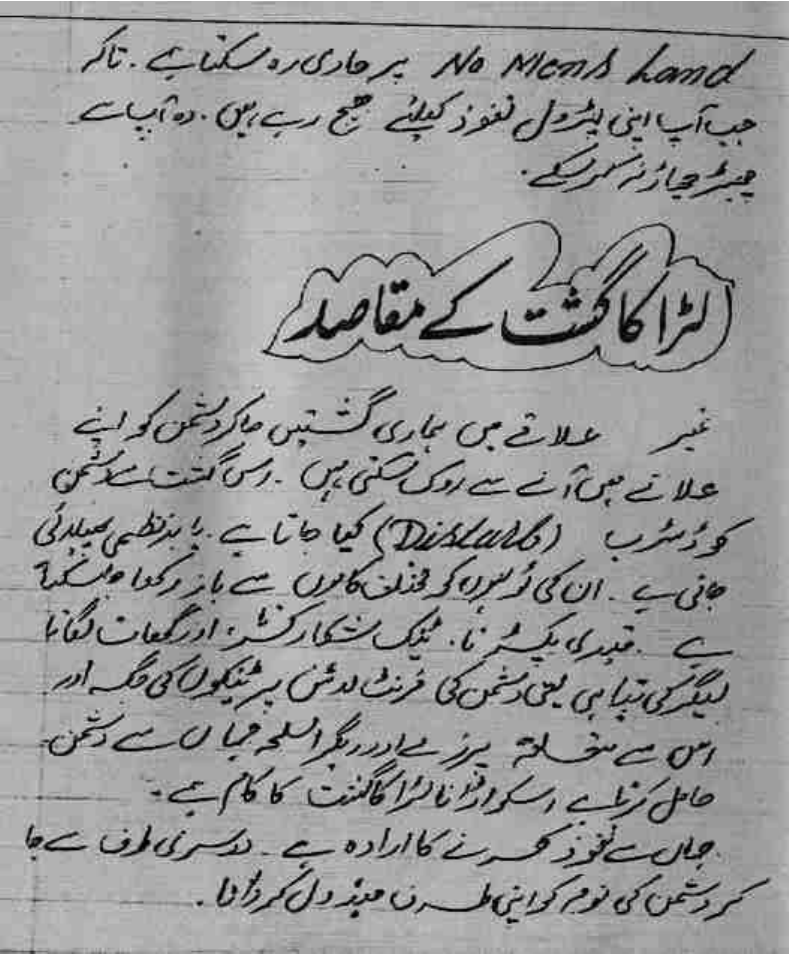 No Mens Land پر حاوی رہ سکتا ہے۔ تاکہ
جب آپ اپنی پٹرول نفوذ کیلئے بھیج رہے ہیں۔ وہ آپ سے
چھیڑ چھاڑ نہ کر سکے۔
لڑاکا گشت کے مقاصد
غیر علاقے میں ہماری گشتیں جا کر دشمن کو اپنے
علاقے میں آنے سے روک سکتی ہیں۔ اس گشت سے دشمن
کو ڈسٹرب (Disturb) کیا جاتا ہے۔ یا بدنظمی پھیلائی
جاتی ہے۔ ان کی کو مختلف کاموں سے باز رکھا جا سکتا
ہے۔ قیدی پکڑنا۔ ٹینک شکار کرنا، اور گھات لگانا
لیگر کی تباہی یعنی دشمن کی فرنٹ لائن پر ٹینکوں کی جگہ اور
اس سے متعلقہ پرزے اور دیگر اسلحہ جہاں سے دشمن
حاصل کرتا ہے اسکو اڑانا لڑاکا گشت کا کام ہے۔
جہاں سے نفوذ کرنے کا ارادہ ہے۔ دوسری طرف سے جا
کر دشمن کی توجہ کو اپنی طرف مبذول کروانا۔